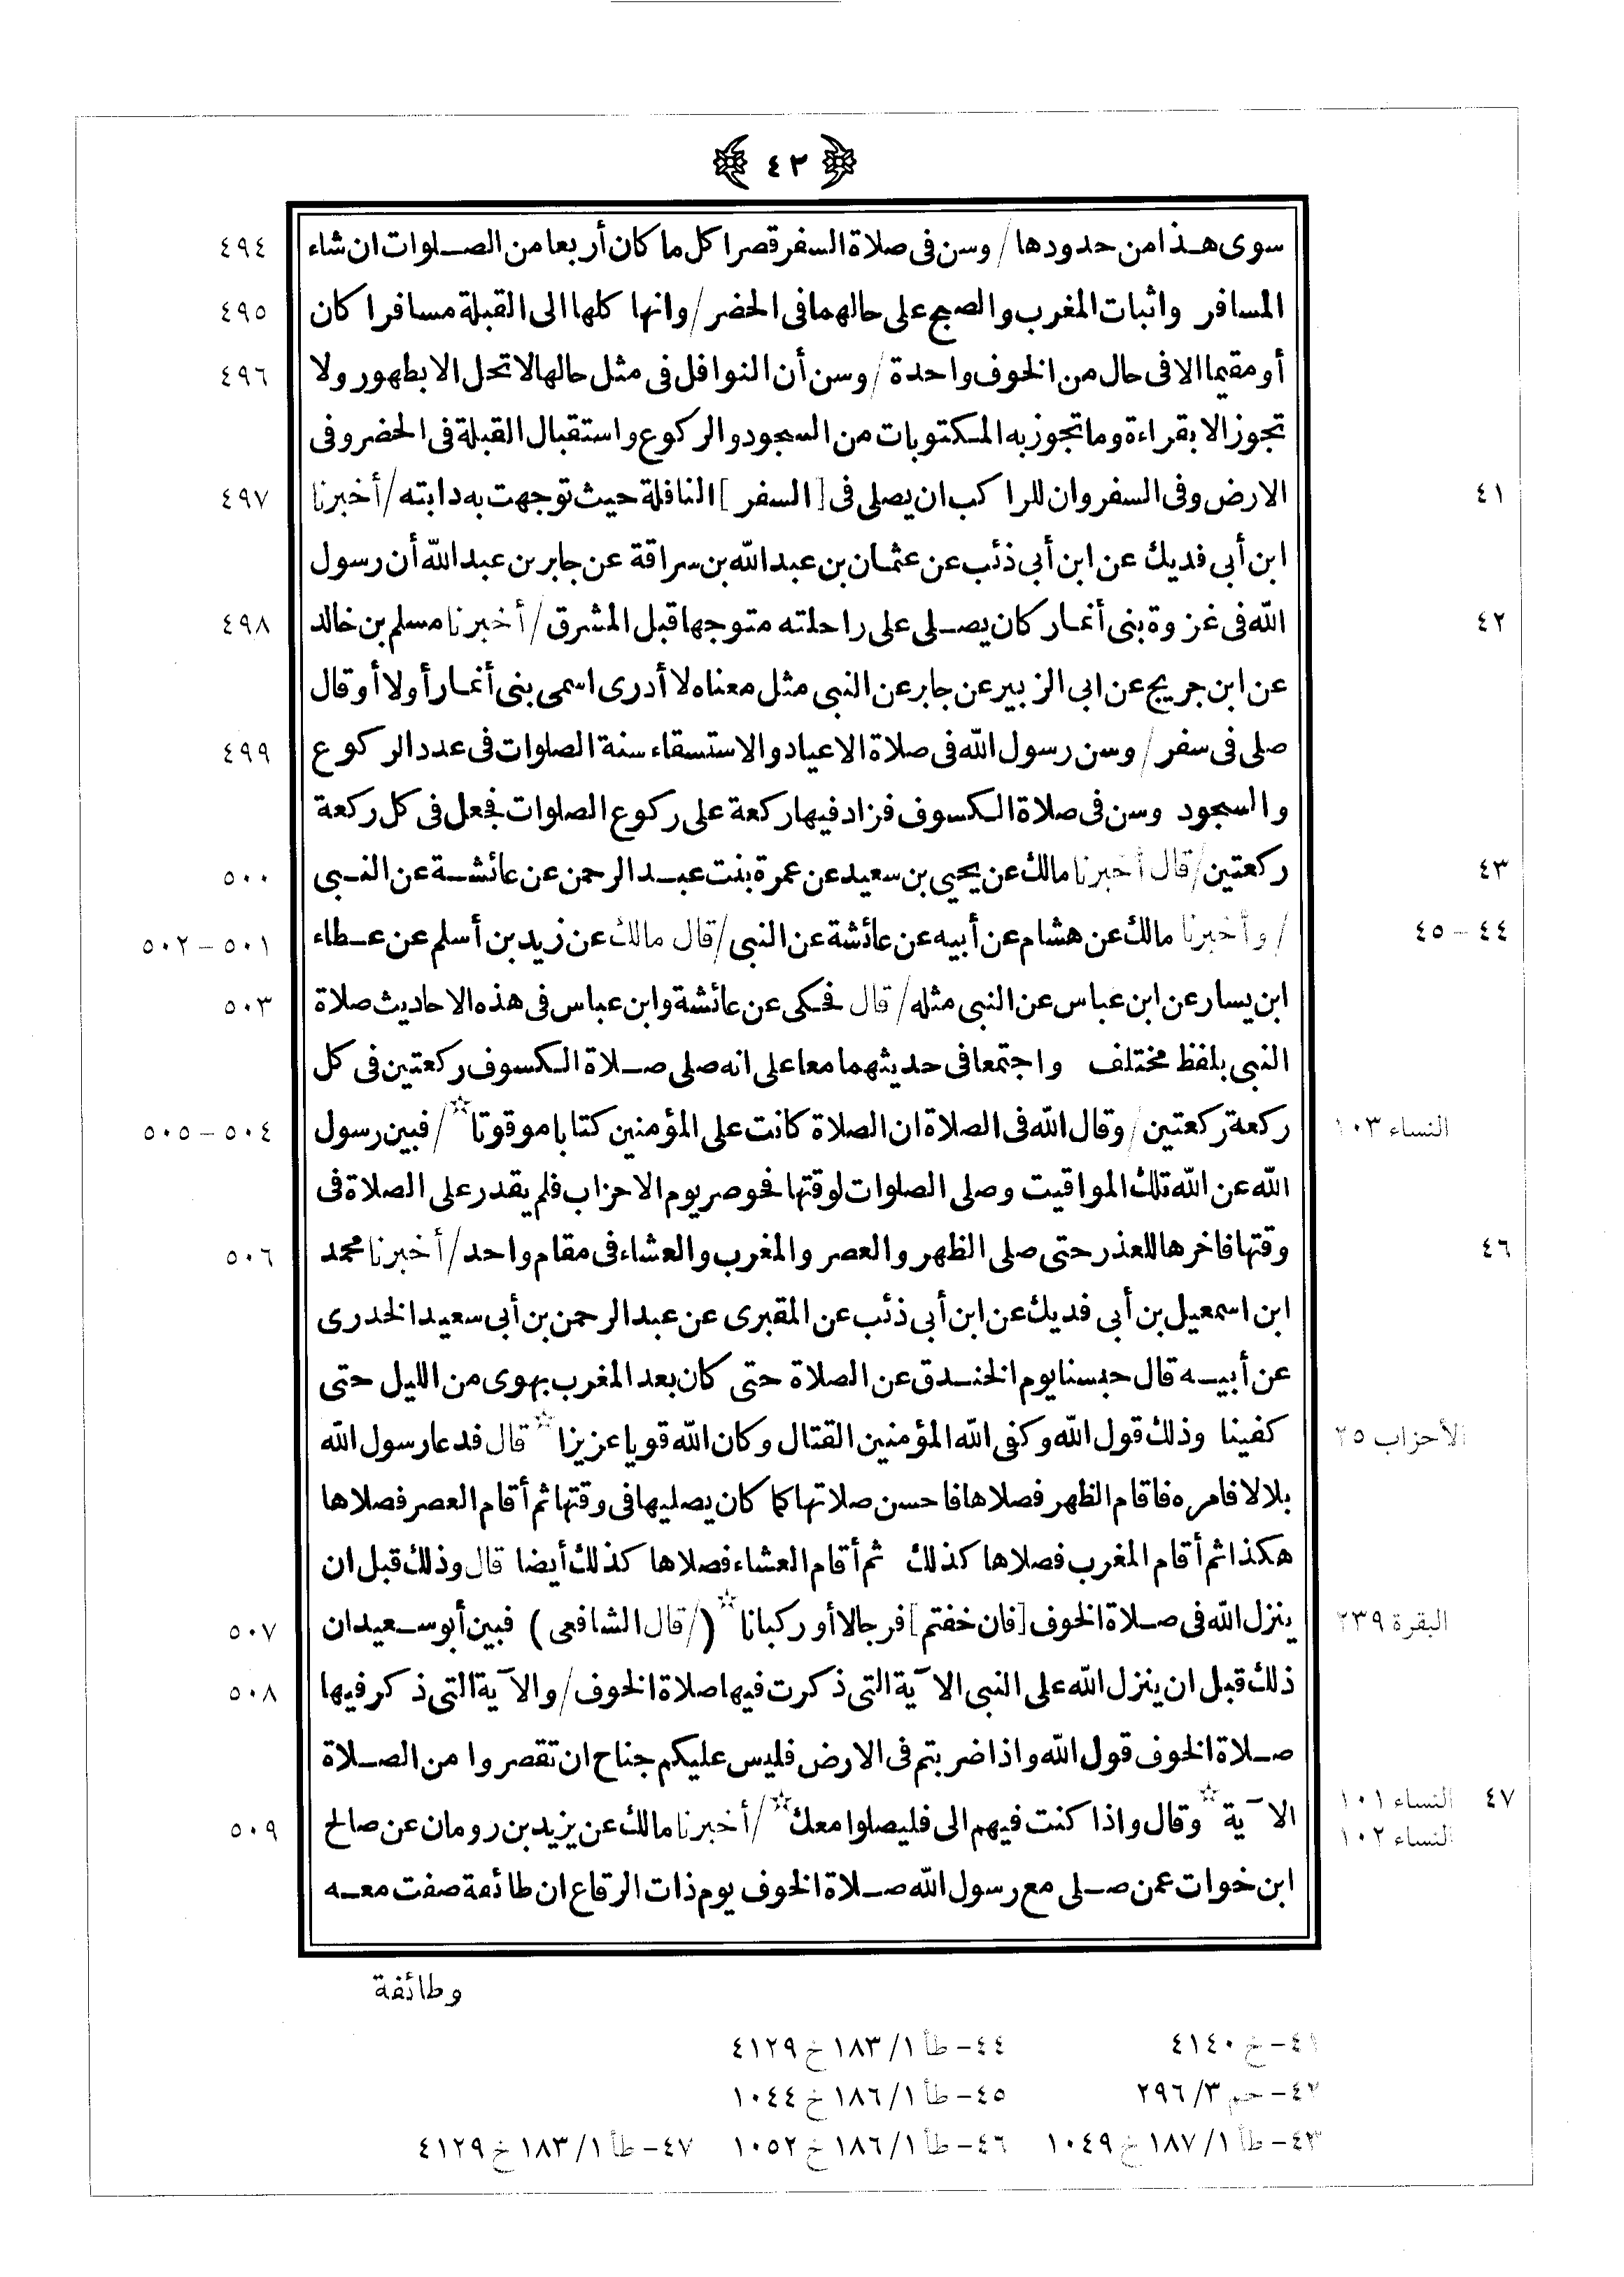 ٤٣
٤٩٤ سوى هذا من حدودها / وسن فى صلاة السفر قصرا كل ما كان أربعا من الصلوات ان شاء
٤٩٥ المسافر واثبات المغرب والصبح على حالهما فى الحضر / وانها كلها الى القبلة مسافرا كان
٤٩٦ أو مقيما الا فى حال من الخوف واحدة / وسن أن النوافل فى مثل حالها لا تحل الا بطهور ولا
تجوز الا بقراءة وما تجوز به المكتوبات من السجود والركوع واستقبال القبلة فى الحضر وفى
٤١ ٤٩٧ الارض وفى السفر وان للراكب ان يصلى فى [السفر] النافلة حيث توجهت به دابته / أخبرنا
ابن أبى فديك عن ابن أبى ذئب عن عثمان بن عبد الله بن سراقة عن جابر بن عبد الله أن رسول
٤٢ ٤٩٨ الله فى غزوة بنى أنمار كان يصلى على راحلته متوجها قبل المشرق / أخبرنا مسلم بن خالد
عن ابن جريج عن ابى الزبير عن جابر عن النبى مثل معناه لا أدرى اسمى بنى أنمار أولا أو قال
٤٩٩ صلى فى سفر / وسن رسول الله فى صلاة الاعياد والاستسقاء سنة الصلوات فى عدد الركوع
والسجود وسن فى صلاة الكسوف فزاد فيها ركعة على ركوع الصلوات فجعل فى كل ركعة
٤٣ ٥٠٠ ركعتين / قال أخبرنا مالك عن يحيى بن سعيد عن عمرة بنت عبد الرحمن عن عائشة عن النبى
٤٤ – ٤٥ ٥٠١ – ٥٠٢ / وأخبرنا مالك عن هشام عن أبيه عن عائشة عن النبى / قال مالك عن زيد بن أسلم عن عطاء
٥٠٣ ابن يسار عن ابن عباس عن النبى مثله / قال فحكى عن عائشة وابن عباس فى هذه الاحاديث صلاة
النبى بلفظ مختلف واجتمعا فى حديثهما معا على انه صلى صلاة الكسوف ركعتين فى كل
النساء ١٠٣ ٥٠٤ – ٥٠٥ ركعة ركعتين / وقال الله فى الصلاة ان الصلاة كانت على المؤمنين كتابا موقوتا☆ / فبين رسول
الله عن الله تلك المواقيت وصلى الصلوات لوقتها فحوصر يوم الاحزاب فلم يقدر على الصلاة فى
٤٦ ٥٠٦ وقتها فاخرها للعذر حتى صلى الظهر والعصر والمغرب والعشاء فى مقام واحد / أخبرنا محمد
ابن اسمعيل بن أبى فديك عن ابن أبى ذئب عن المقبرى عن عبد الرحمن بن أبى سعيد الخدرى
عن أبيه قال حبسنا يوم الخندق عن الصلاة حتى كان بعد المغرب بهوى من الليل حتى
الأحزاب ٢٥ كفينا وذلك قول الله وكفى الله المؤمنين القتال وكان الله قويا عزيزا☆ قال فدعا رسول الله
بلالا فامره فاقام الظهر فصلاها فاحسن صلاتها كما كان يصليها فى وقتها ثم أقام العصر فصلاها
هكذا ثم أقام المغرب فصلاها كذلك ثم أقام العشاء فصلاها كذلك أيضا قال وذلك قبل ان
البقرة ٢٣٩ ٥٠٧ ينزل الله فى صلاة الخوف [فان خفتم] فرجالا أو ركبانا☆ (/ قال الشافعى) فبين أبو سعيد ان
٥٠٨ ذلك قبل ان ينزل الله على النبى الآية التى ذكرت فيها صلاة الخوف / والآية التى ذكر فيها
صلاة الخوف قول الله واذا ضربتم فى الارض فليس عليكم جناح ان تقصروا من الصلاة
٤٧ النساء ١٠١ النساء ١٠٢ ٥٠٩ الآية☆ وقال واذا كنت فيهم الى فليصلوا معك☆ / أخبرنا مالك عن يزيد بن رومان عن صالح
ابن خوات عمن صلى مع رسول الله صلاة الخوف يوم ذات الرقاع ان طائفة صفت معه
وطائفة
٤١– خ ٤١٤٠ ٤٤– طأ ١/ ١٨٣ خ ٤١٢٩
٤٢– حم ٣/ ٢٩٦ ٤٥– طأ ١/ ١٨٦ خ ١٠٤٤
٤٣– طأ ١/ ١٨٧ خ ١٠٤٩ ٤٦– طأ ١/ ١٨٦ خ ١٠٥٢ ٤٧– طأ ١/ ١٨٣ خ ٤١٢٩